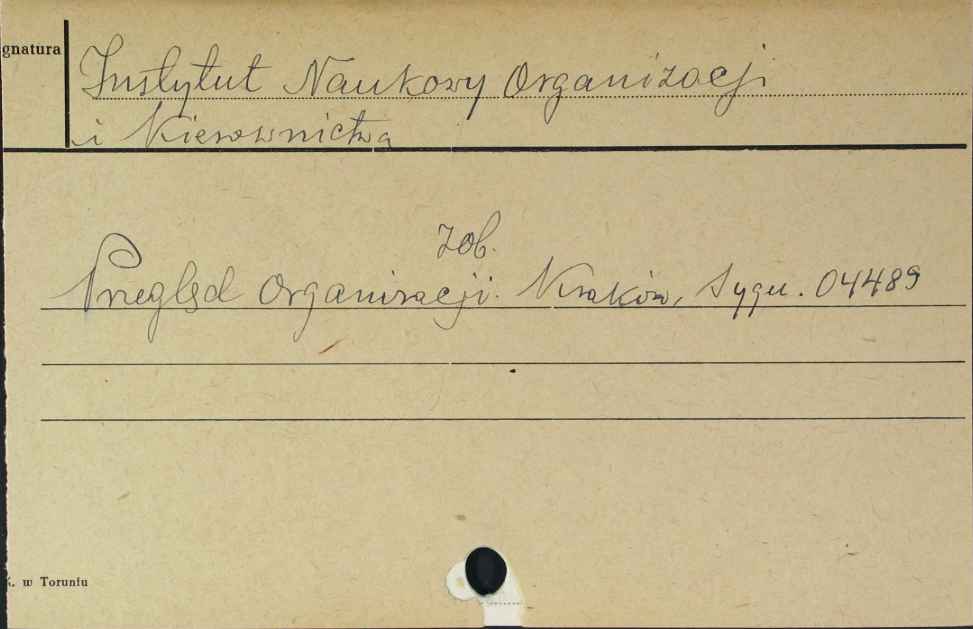 gnatura
Instytut Naukowy Organizacji
i Kierownictwa
zob.
Przegląd Organizacji. Kraków, Sygn. 04489
K. w Toruniu